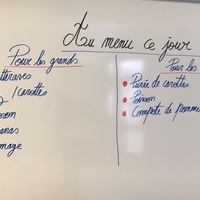 Au menu ce jour
Pour les grands
ttéraves
/ carottes
anas
mage
Pour les
Purée de carottes
Poisson
Compote de pomme